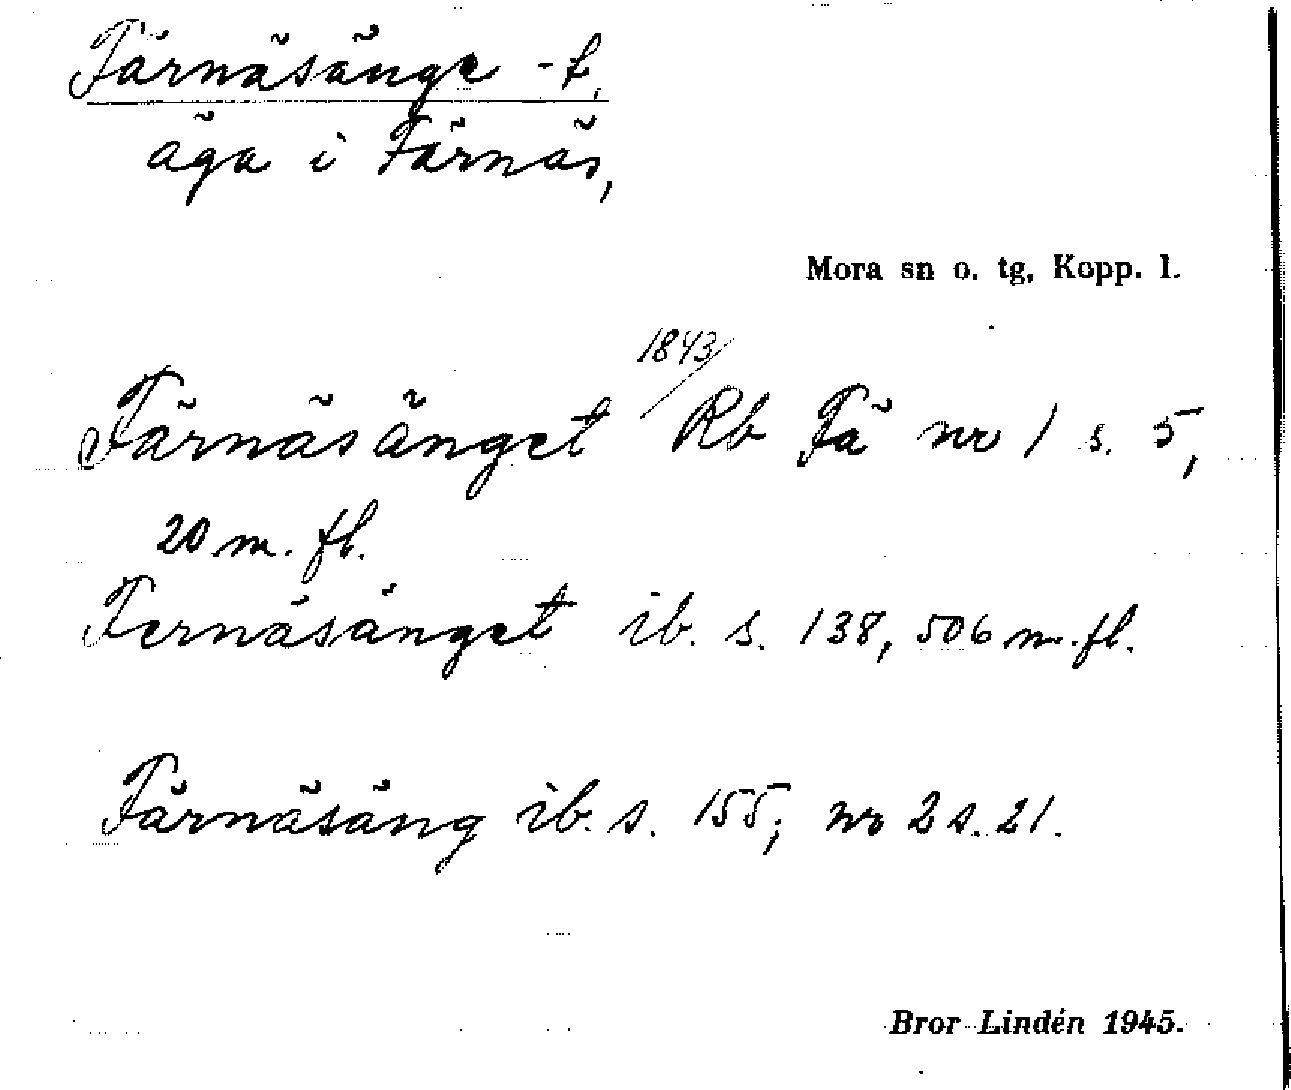 Färnäsänge -t,
äga i Färnäs,
Mora sn o. tg, Kopp. l.
1843/
Färnäsänget Rb Fä nr 1 s. 5,
20 m. fl.
Fernäsänget ib. s. 138, 506 m. fl.
Färnäsäng ib. s. 155; nr 2 s. 21.
Bror Lindén 1945.